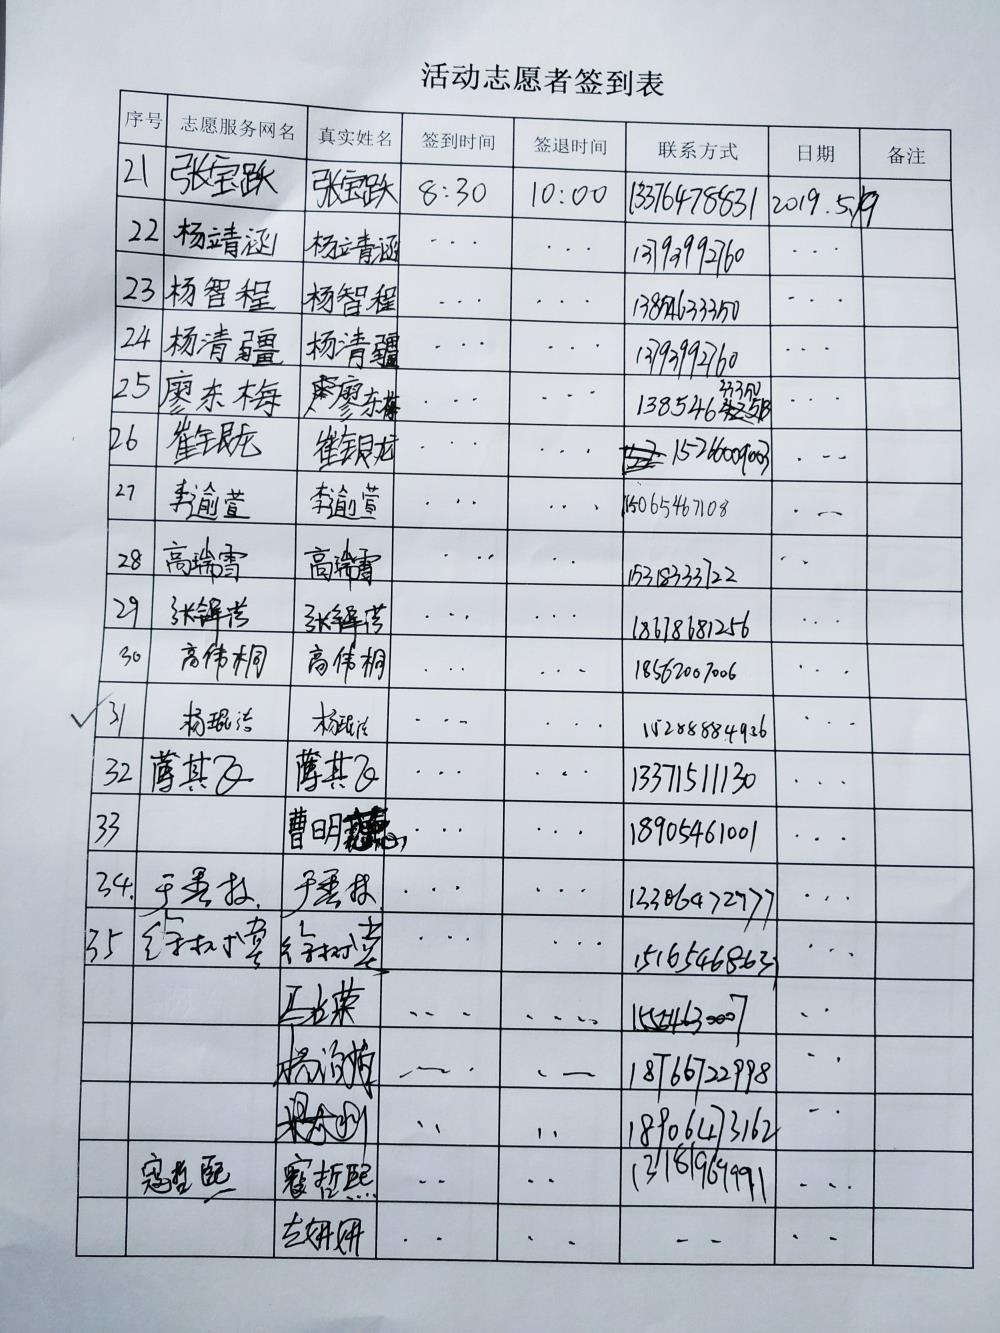 活动志愿者签到表
序号 志愿服务网名 真实姓名 签到时间 签退时间 联系方式 日期 备注
21 张宝跃 张宝跃 8:30 10:00 13376478831 2019.5.19
22 杨靖涵 杨靖涵 ... ... 13793992760 ...
23 杨智程 杨智程 ... ... ...
24 杨清疆 杨清疆 ... ... 13793992760 ...
25 廖东梅 廖东梅 ... ... 138546 33350 ...
26 崔银龙 崔银龙 ... ... 15266009003 ...
27 李逾萱 李逾萱 ... ... 15065467108
28 高瑞雪 高瑞雪 ... ... 15318333722 ..
29 张铎浩 张铎浩 ... ... 18678681256 ...
30 高伟桐 高伟桐 ... ... 18562007006 ...
31 杨琨洁 杨琨洁 ... ... 15288884936 ...
32 薄其飞 薄其飞 ... ... 13371511130 ...
33 曹明 ... ... 18905461001 ...
34. 于 于 ... ... 13306472777 ...
35 徐 徐 ... ... ...
... ... ..
杨 18766722998 ...
.. .. 18906473162 ...
寇哲熙 寇哲熙 .. .. 13181969991 ...
左妍妍 .. .. -- ...